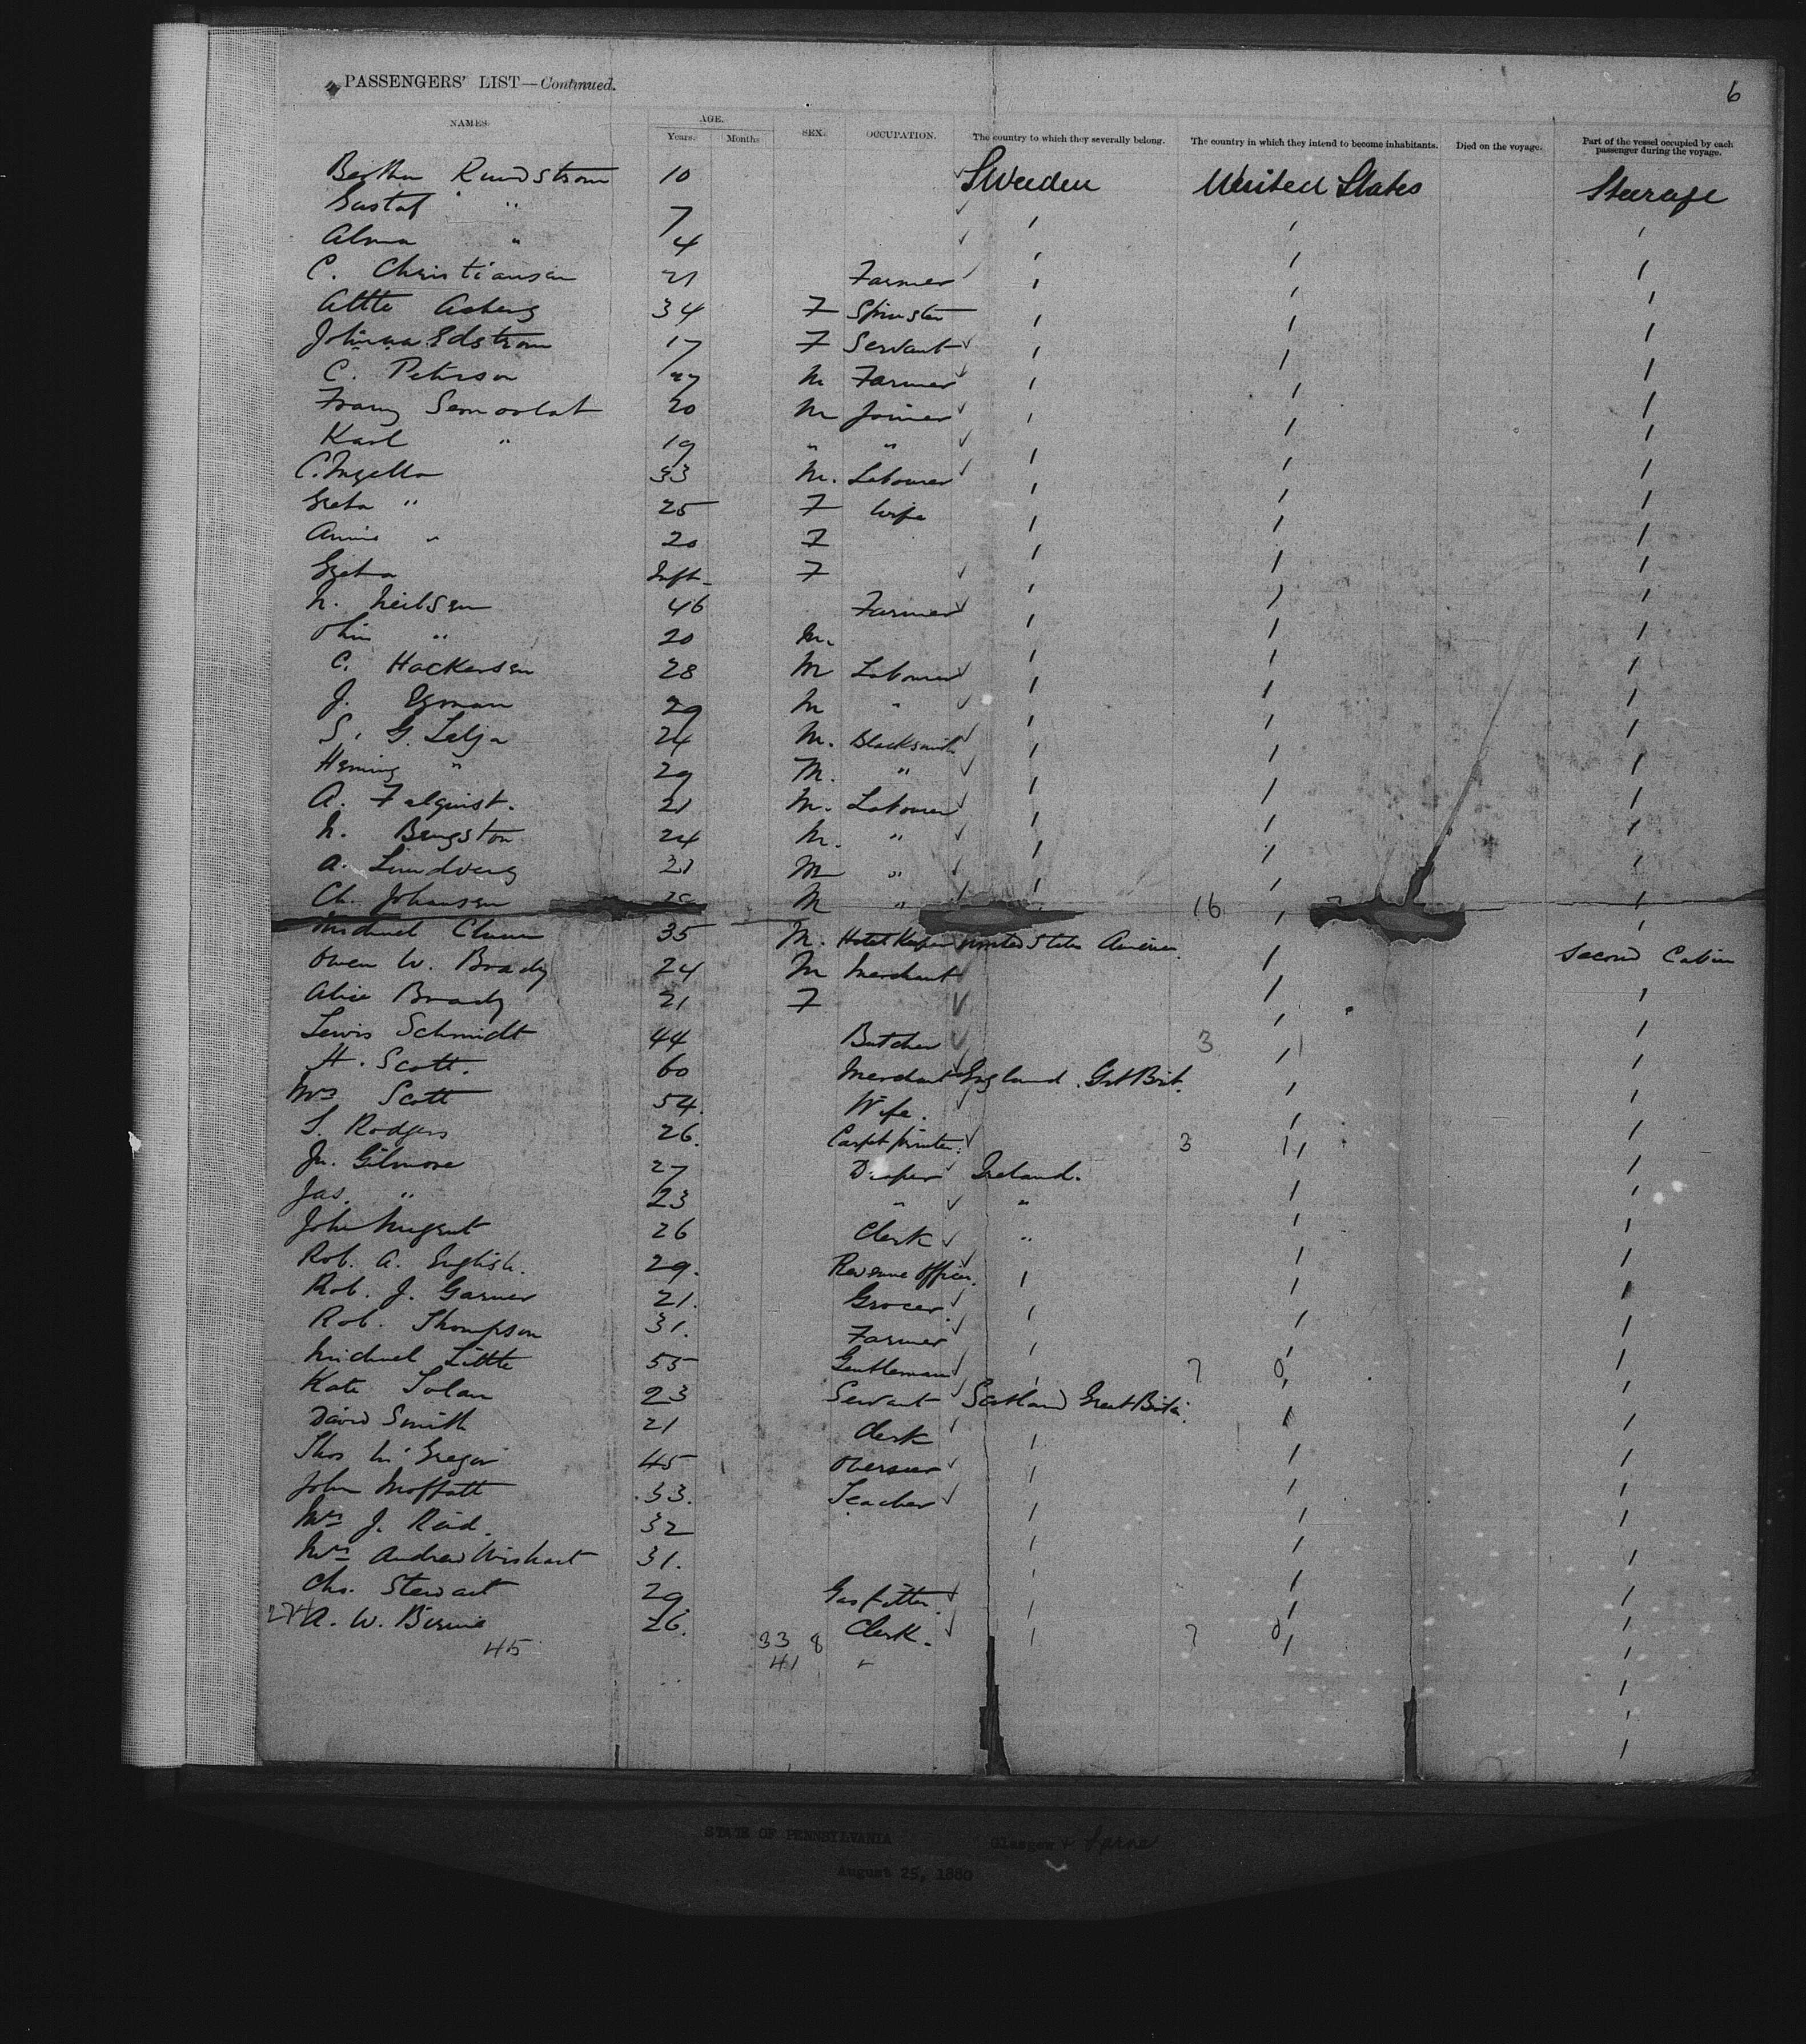 PASSENGERS' LIST—Continued. 6
NAMES. AGE. Years. Months SEX. OCCUPATION. The country to which they severally belong. The country in which they intend to become inhabitants. Died on the voyage. Part of the vessel occupied by each passenger during the voyage.
Bertha Rundstrom 10 Sweden United States Steerage
Gustaf " 7
Alma " 4
C. Christiansen 21 Farmer
34 F Spinster
Edstrom 17 F Servant
C. Peterson M Farmer
Franz 20 M Joiner
Karl " 19 " "
33 M. Labourer
Greta " 25 F Wife
Annie " 20 F
Greta Inft F
N. Neilsen 46 Farmer
" 20 M.
C. Hackersen 28 M Labourer
J. 29 M "
S. G. Lilja 24 M. Blacksmith
Hening " 29 M. "
A. Falquist. 21 M. Labourer
N. Bengston 24 M. "
A. Lundverg 21 M "
Ch. Johansen M " 16
Michael 35 M. Hotel Keeper United States America Second Cabin
Owen W. Brady 24 M Merchant
Alice Brady 21 F
Lewis Schmidt 44 Butcher 3
H. Scott. 60 Merchant England Gt Brit.
Mrs Scott 54. Wife.
S. Rodgers 26. Carpet printer. 3
Jn. Gilmore 27 Draper Ireland.
Jas. " 23 " "
John Nugent 26 Clerk "
Rob. A. English. 29. Revenue Officer.
Rob. J. Garner 21. Grocer
Rob. Thompson 31. Farmer
Michael Little 55 Gentleman 7 0
Kate Tolan 23 Servant Scotland Great Britn.
David Smith 21 Clerk
Thos McGregor 45 Overseer
John Moffatt 53. Teacher
Mrs J. Reid. 32
Mrs Andrew Wishart 31.
Chs. Stewart 29. Gasfitter.
274 A. W. Birnie 26. Clerk. 7 0
45 33 8
41
STATE OF PENNSYLVANIA Glasgow + Larne
August 25, 1880